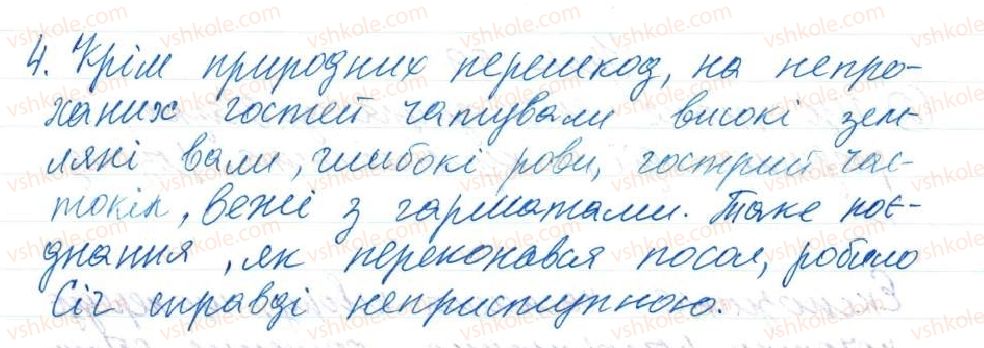 4. Крім природних перешкод, на непро-
ханих гостей чатували високі зем-
ляні вали, глибокі рови, гострий час-
токіл, вежі з гарматами. Таке поє-
днання, як переконався посол, робило
Січ справді неприступною.